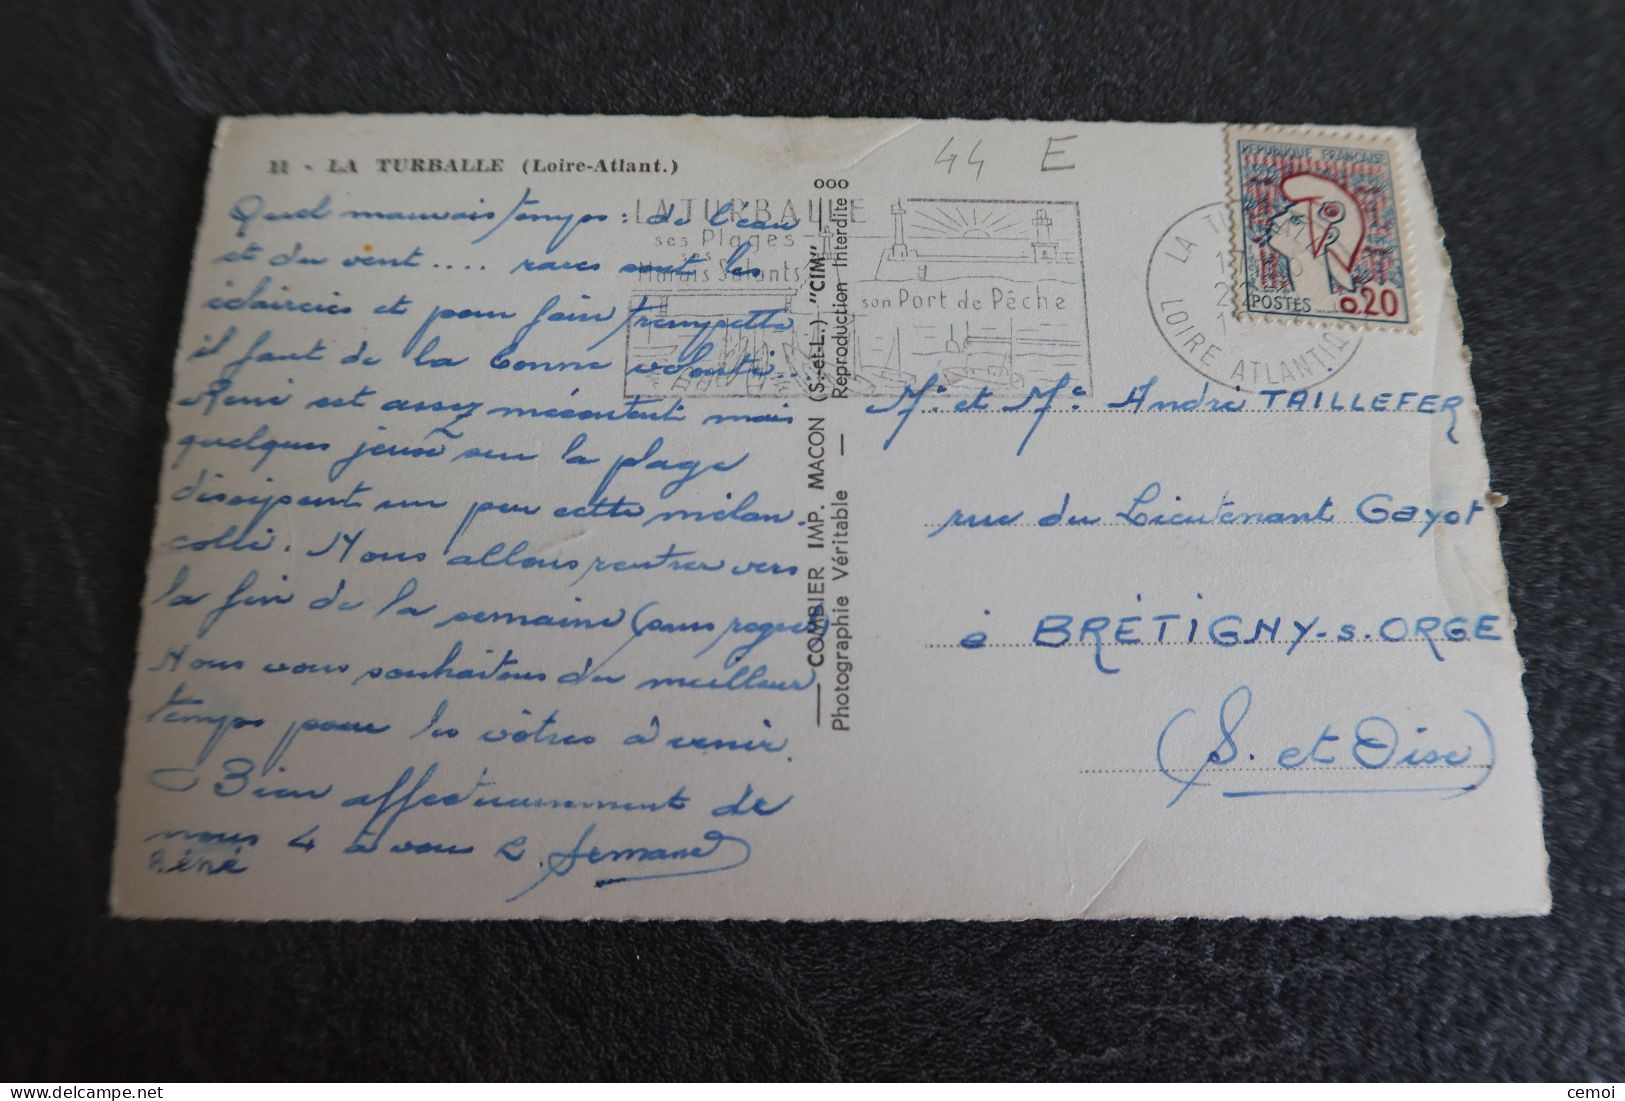 11 - LA TURBALLE (Loire-Atlant.)
Quel mauvais temps : de l'eau
et du vent .... rares sont les
éclaircies et pour faire trempette
il faut de la bonne volonté.
René est assez mécontent mais
quelques jeux sur la plage
dissipent un peu cette mélan-
colie. Nous allons rentrer vers
la fin de la semaine (sans regret)
Nous vous souhaitons du meilleur
temps pour les vôtres à venir.
Bien affectueusement de
nous 4 à vous 2.
Réné
LA TURBALLE
ses Plages
ses
Marais Salants
son Port de Pêche
COMBIER IMP. MACON (S.-et-L.) "CIM"
Photographie Véritable — Reproduction Interdite
44 E
LA T
LOIRE ATLANTIQ
REPUBLIQUE FRANÇAISE
POSTES
0,20
Mr et Me André TAILLEFER
rue du Lieutenant Gayot
à BRÉTIGNY-s-ORGE
(S. et Oise)
delcampe.net
cemoi